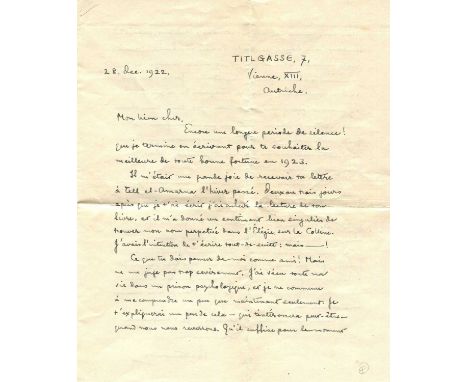 TITLGASSE, 7,
28. Dec. 1922.
Vienne, XIII,
Autriche.
Mon bien cher,
Encore une longue période de silence!
que je termine en écrivant pour te souhaiter la
meilleure de toute bonne fortune en 1923.
Il m'était une grande joie de recevoir ta lettre
à Tell el-Amarna l'hiver passé. Deux ou trois jours
après que je t'ai écrit j'ai achevé la lecture de ton
livre, et il m'a donné un sentiment bien singulier de
trouver mon nom perpetué dans l'Élégie sur la Colline.
J'avais l'intention de t'écrire tout-de-suite: mais —!
Ce que tu dois penser de moi comme ami! Mais
ne me juge pas trop sévèrement. J'ai vécu toute ma
vie dans un prison psychologique, et je ne commence
à me comprendre un peu que maintenant seulement. Je
t'expliquerai un peu de cela — qui t'intéressera peut-être —
quand nous nous reverrons. Qu'il suffise pour le moment